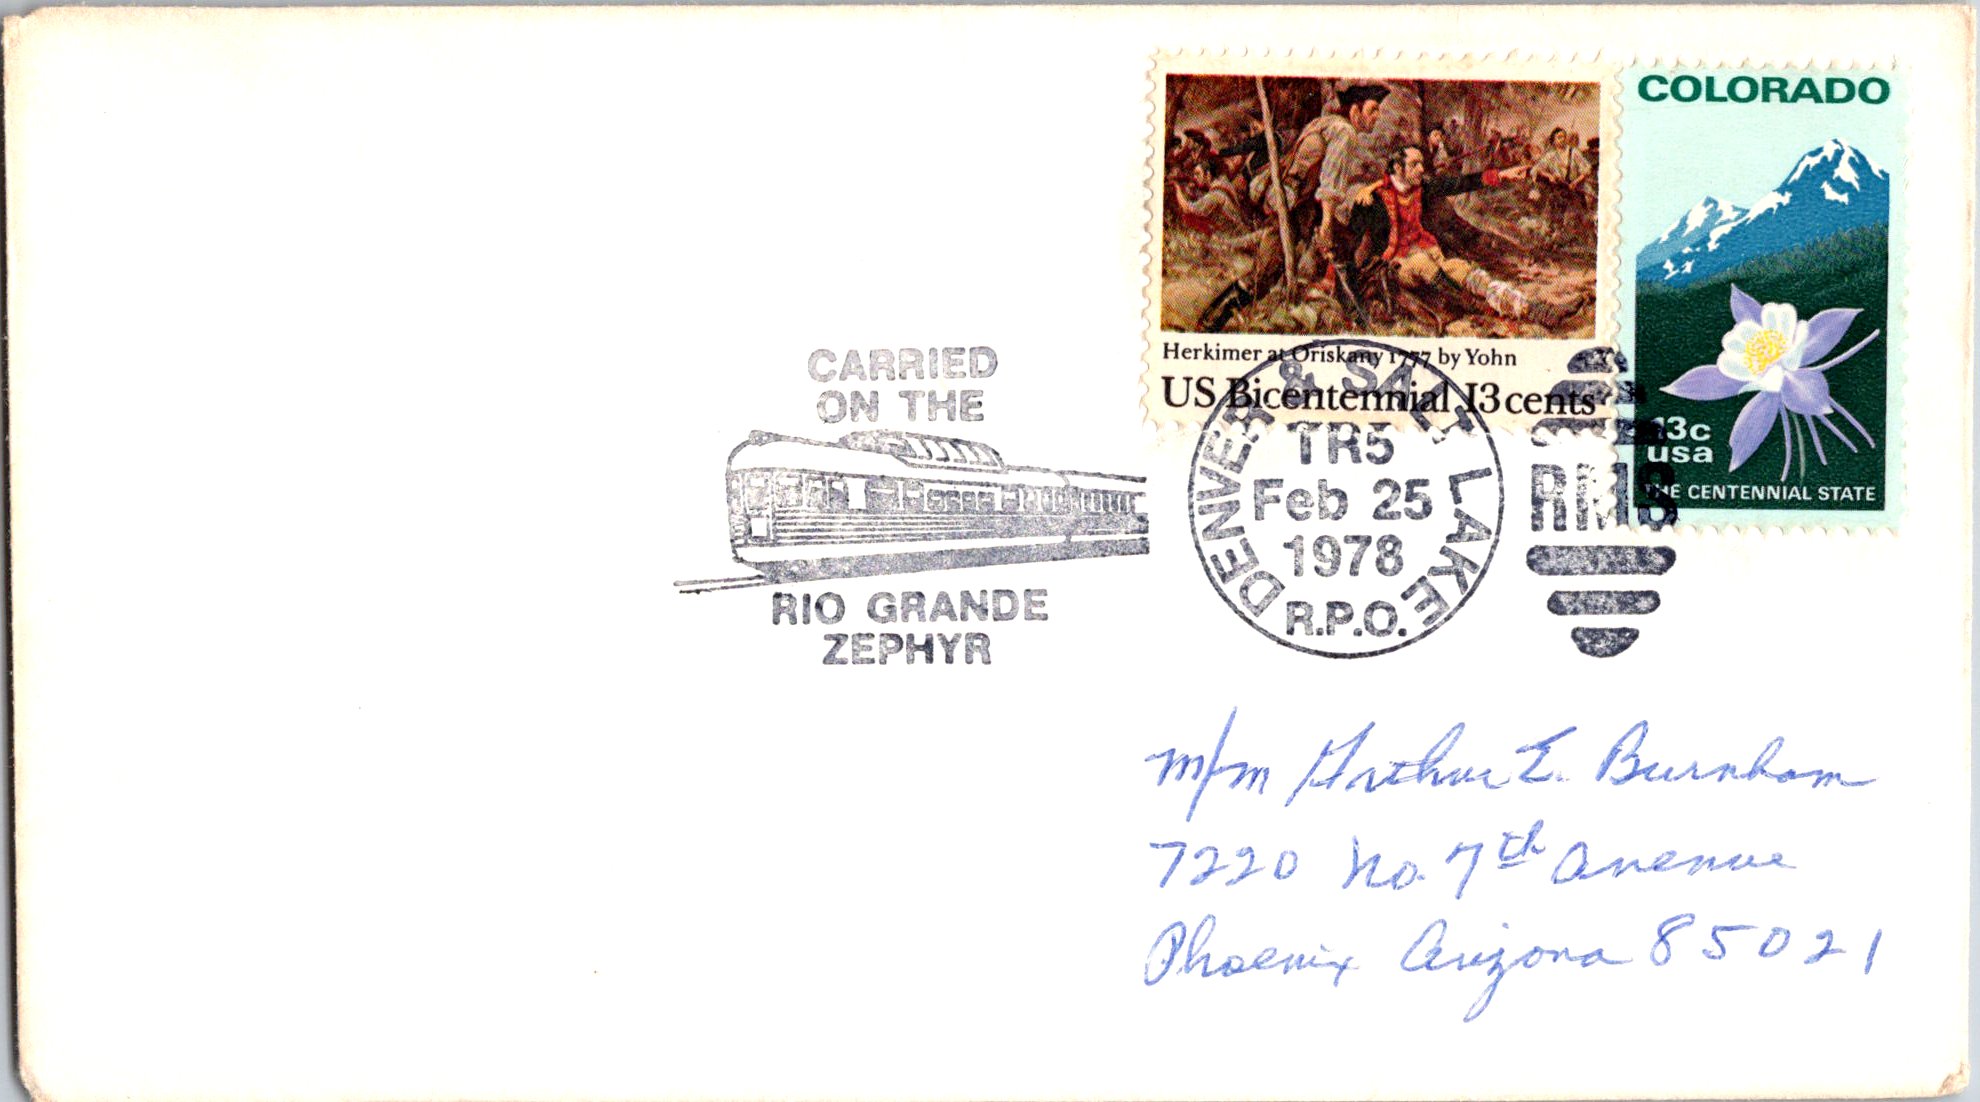 COLORADO
Herkimer at Oriskany 1777 by Yohn
US Bicentennial 13 cents
13c
usa
THE CENTENNIAL STATE
CARRIED
ON THE
RIO GRANDE
ZEPHYR
DENVER & SALT LAKE
TR5
Feb 25
1978
R.P.O.
RMS
M/M Arthur E. Burnham
7220 No. 7th Avenue
Phoenix Arizona 85021